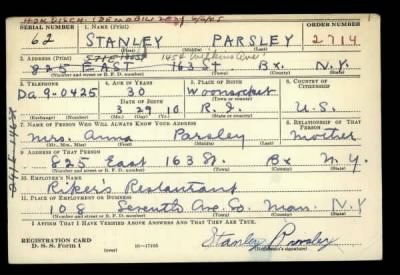 HON. DISCH. (DEMOBILIZED) 6/6/45
SERIAL NUMBER 1. NAME (Print) ORDER NUMBER
62 STANLEY PARSLEY 2714
(First) (Middle) (Last)
2. ADDRESS (Print)
825 EAST 163 St Bx. N.Y.
(Number and street or R. F. D. number) (Town) (County) (State)
3. TELEPHONE 4. AGE IN YEARS 5. PLACE OF BIRTH 6. COUNTRY OF CITIZENSHIP
Da 9-0425 30 Woonsocket
DATE OF BIRTH
3 29 10 R.I. U.S.
(Exchange) (No.) (Mo.) (Day) (Yr.) (State or country)
7. NAME OF PERSON WHO WILL ALWAYS KNOW YOUR ADDRESS 8. RELATIONSHIP OF THAT PERSON
Mrs. Anna Parsley Mother
(Mr., Mrs., Miss) (First) (Middle) (Last)
9. ADDRESS OF THAT PERSON
825 East 163 St. Bx N.Y.
(Number and street or R. F. D. number) (Town) (County) (State)
10. EMPLOYER'S NAME
Riker's Restaurant
11. PLACE OF EMPLOYMENT OR BUSINESS
108 Seventh Ave. So. Man. N.Y
(Number and street or R. F. D. number) (Town) (County) (State)
I AFFIRM THAT I HAVE VERIFIED ABOVE ANSWERS AND THAT THEY ARE TRUE.
REGISTRATION CARD
D. S. S. Form 1 16-17105 Stanley Parsley
(Registrant's signature)